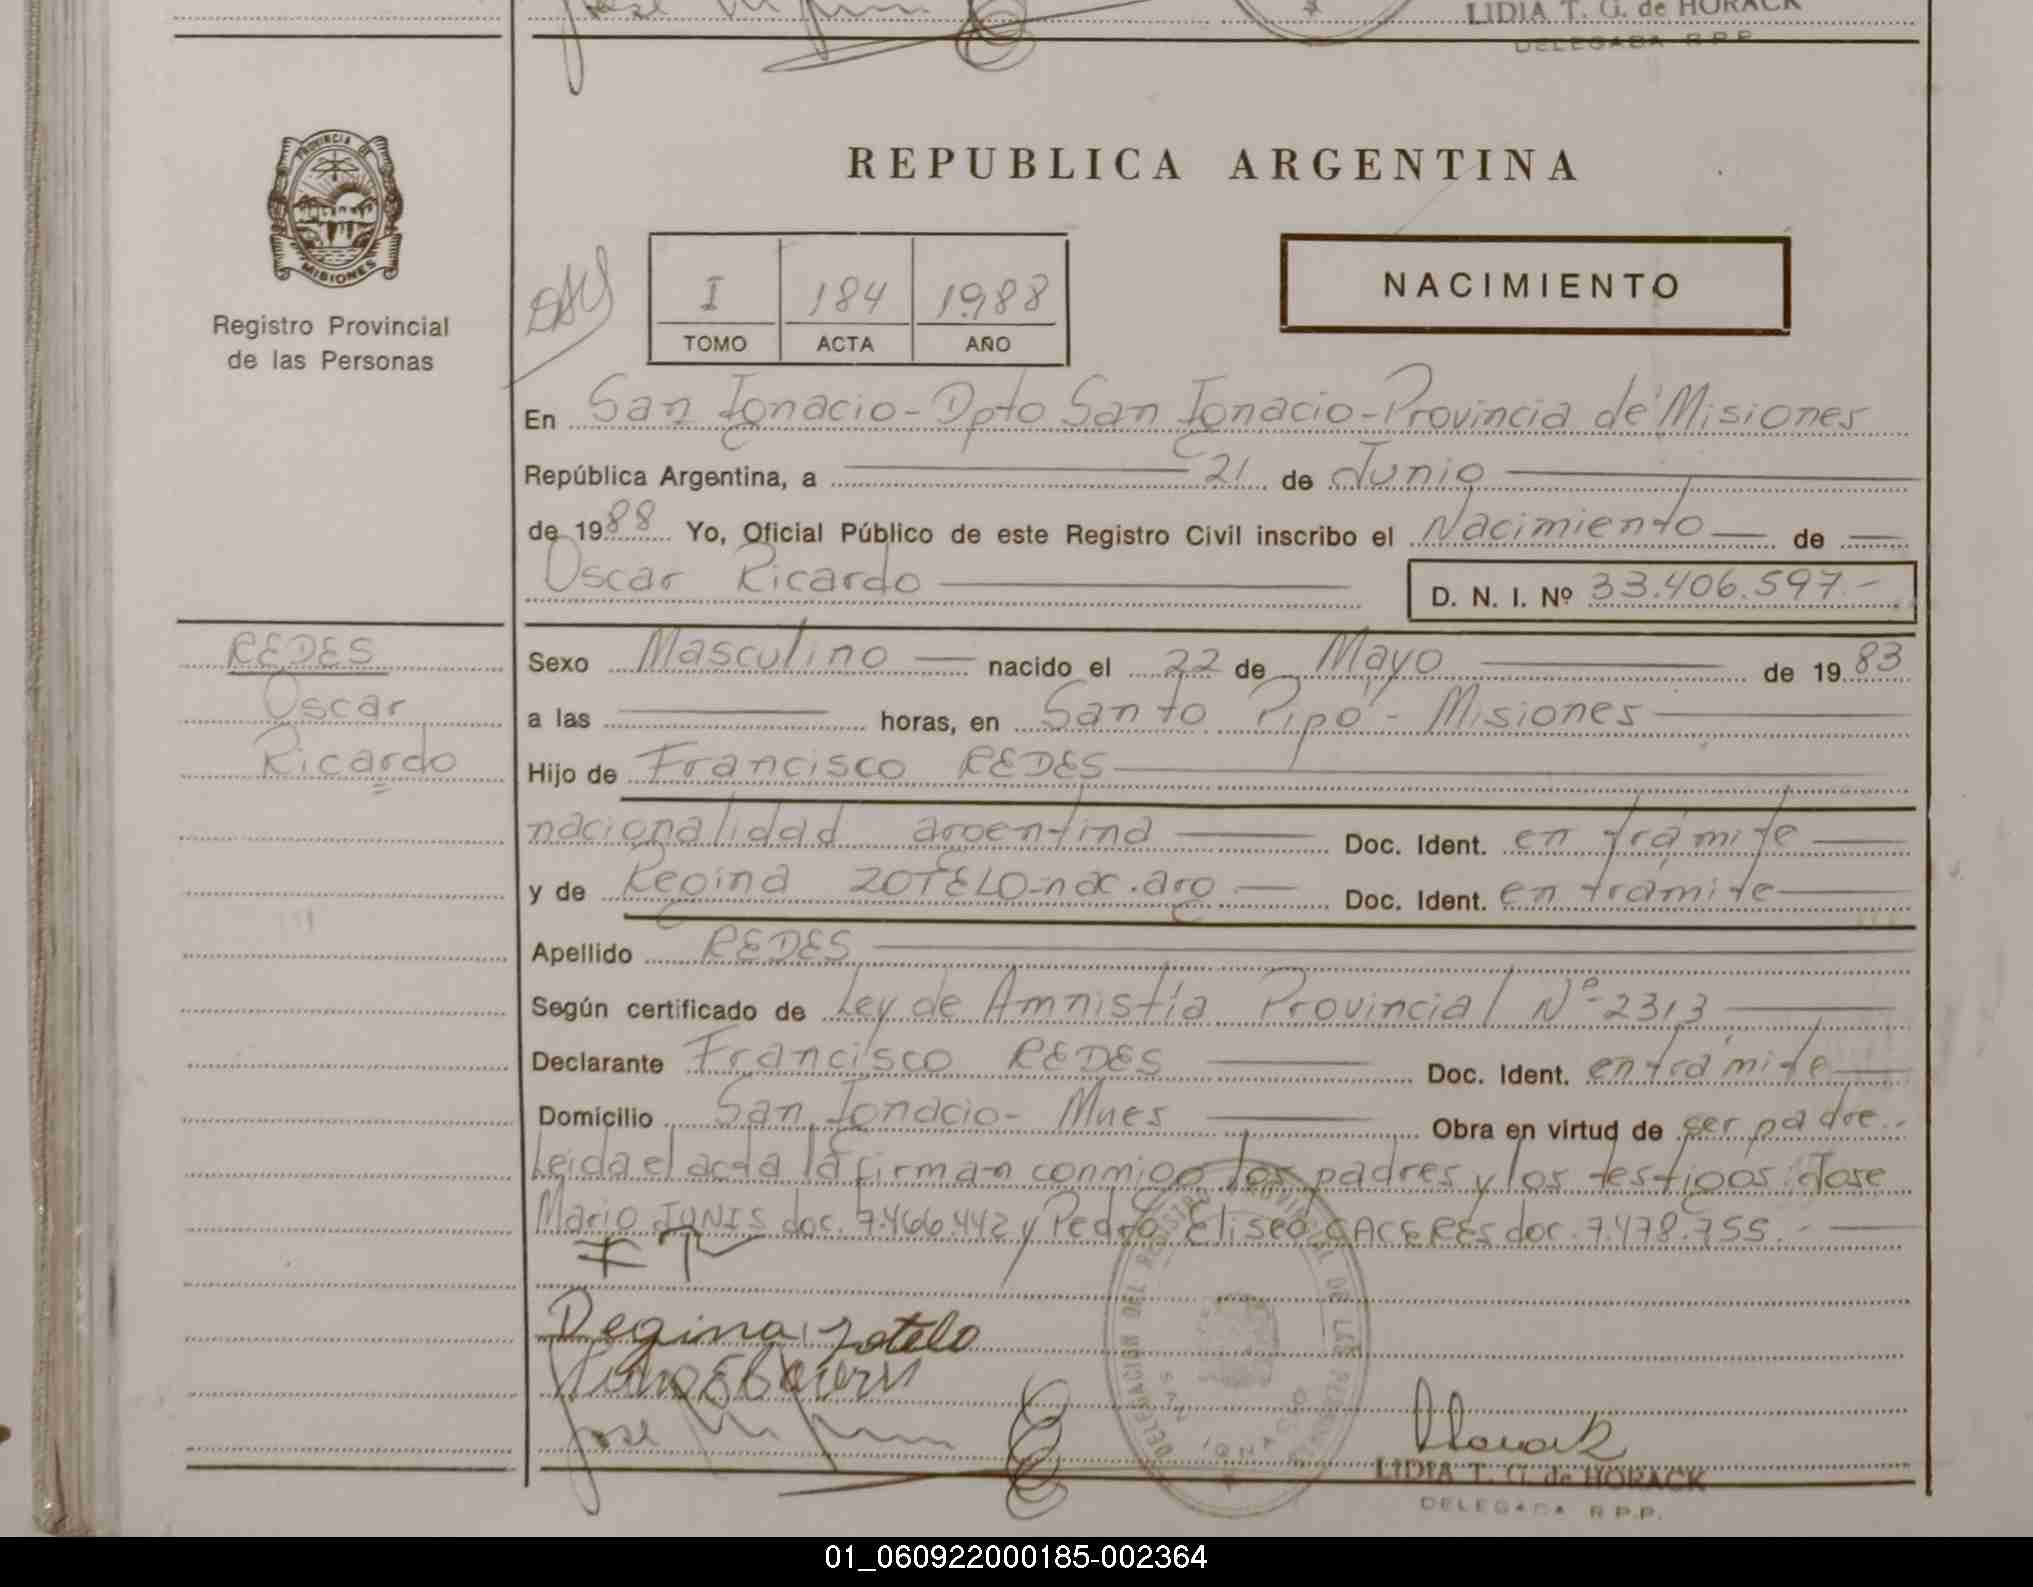 LIDIA T. G. de HORACK
DELEGADA R.P.P.
PROVINCIA DE
MISIONES
Registro Provincial
de las Personas
REPUBLICA ARGENTINA
I 184 1988
TOMO ACTA AÑO
NACIMIENTO
En San Ignacio - Dpto San Ignacio - Provincia de Misiones
República Argentina, a 21 de Junio
de 1988 Yo, Oficial Público de este Registro Civil inscribo el Nacimiento de
Oscar Ricardo
D. N. I. Nº 33.406.597.-
REDES
Oscar
Ricardo
Sexo Masculino nacido el 22 de Mayo de 1983
a las horas, en Santo Pipó - Misiones
Hijo de Francisco REDES
nacionalidad argentina Doc. Ident. en trámite
y de Regina ZOTELO - nac. arg Doc. Ident. en trámite
Apellido REDES
Según certificado de Ley de Amnistía Provincial Nº 2313
Declarante Francisco REDES Doc. Ident. en trámite
Domicilio San Ignacio - Mnes Obra en virtud de ser padre.-
Leida el acta la firman conmigo los padres y los testigos: Jose
Mario JUNIS doc. 7.466.442 y Pedro Eliseo CACERES doc. 7.478.755.-
Regina Zotelo
Jose
DELEGACION DEL REGISTRO PROVINCIAL DE LAS PERSONAS
SAN IGNACIO
Horack
LIDIA T. G. de HORACK
DELEGADA R.P.P.
01_060922000185-002364